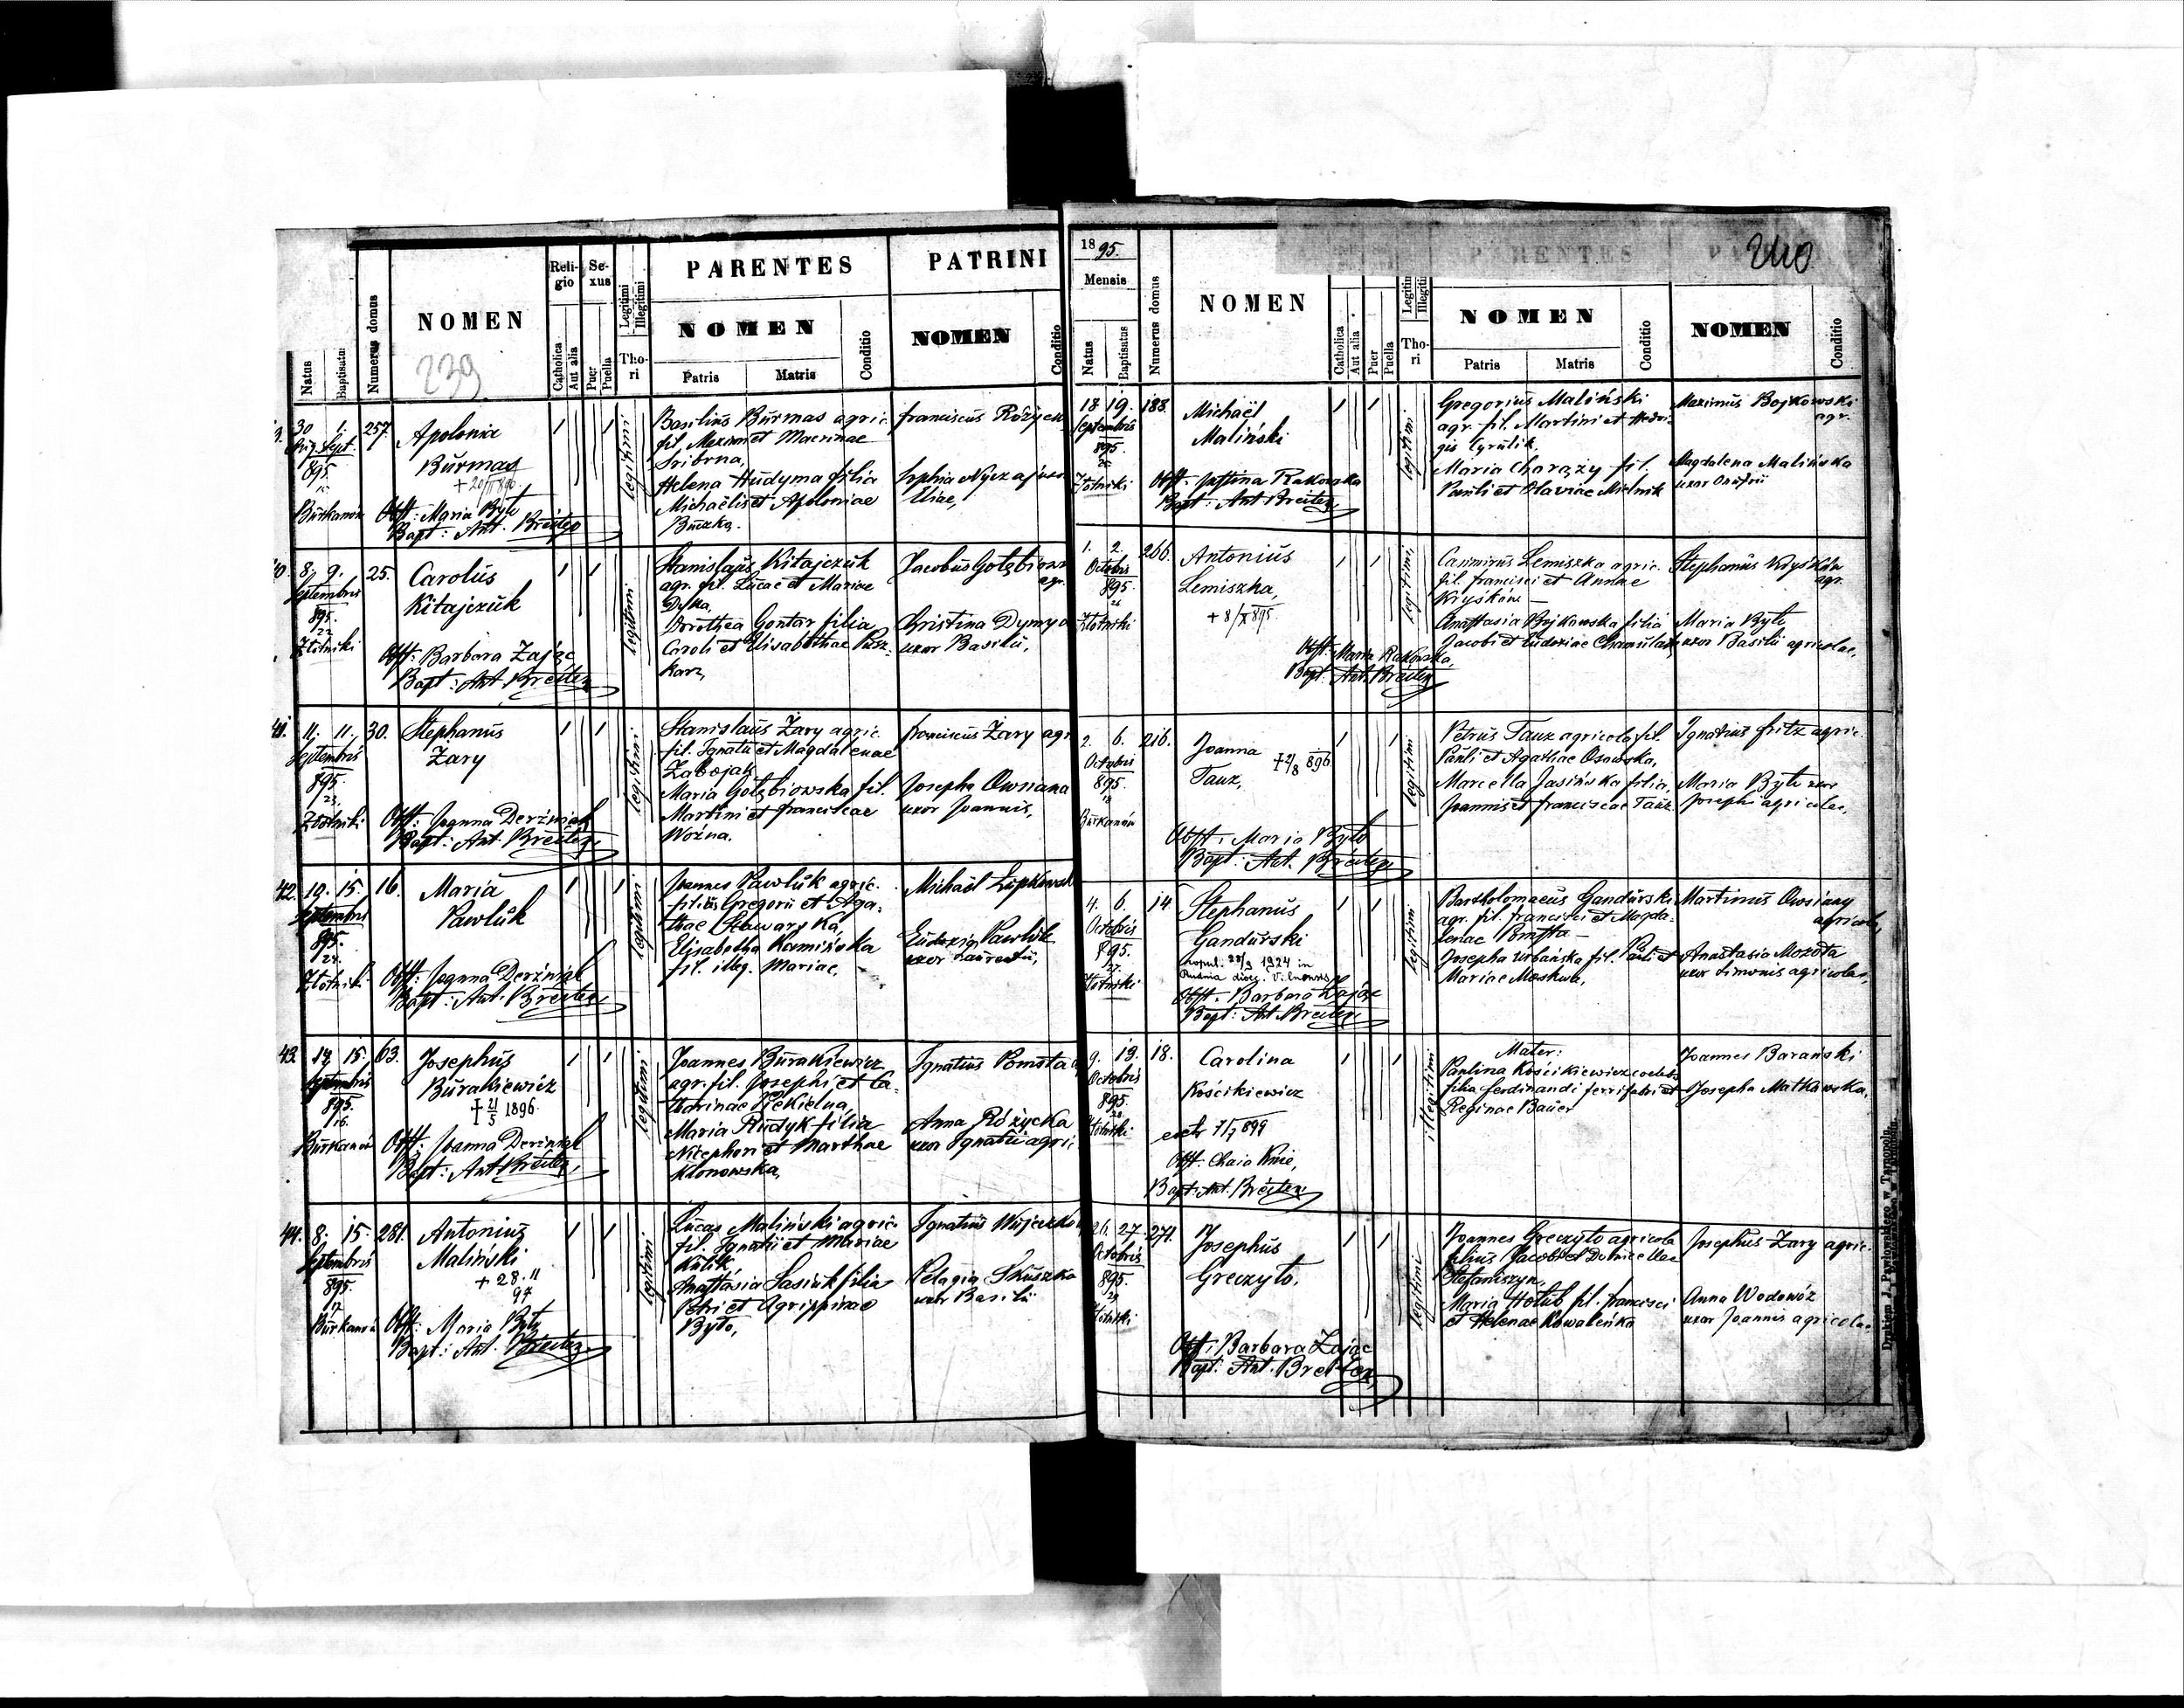 Numerus domus
NOMEN
239
Religio
Sexus
Catholica
Aut alia
Puer
Puella
Legitimi
Illegitimi
Thori
PARENTES
PATRINI
NOMEN
Conditio
NOMEN
Conditio
Natus
Baptisatus
Patris
Matris
30 1. 257. Apolonia
Aug. Sept.
895.
Burkanów
Burmas
legitimi
Obst: Maria Było
Bapt: Ant. Breiter
Basilius Burmas agric.
fil. Maximi et Macrinae
Sribrna,
Helena Hudyma filia
Michaelis et Apoloniae
Franciscus Różyck
Eliae,
8. 9. 25. Carolus
Septembris
895.
22
Złotniki
Kitajczuk
legitimi
Obst: Barbara Zając
Bapt: Ant. Breiter
Stanislaus Kitajczuk
agr. fil. Lucae et Mariae
Dorothea Gontar filia
Caroli et Elisabethae Pusz-
karz,
Jacobus Gołębiows
agr.
Christina Dymy
uxor Basilii,
41. 11. 11. 30. Stephanus
Septembris
895.
23
Złotniki
Żary
legitimi
Obst: Joanna Derżniak
Bapt: Ant. Breiter
Stanislaus Żary agric.
fil. Ignatii et Magdalenae
Maria Gołębiowska fil.
Martini et Franciscae
Woźna.
Franciscus Żary agr
Josepha Owsiana
uxor Joannis,
42. 15. 16. Maria
Septembris
895.
24.
Złotniki
Pawluk
legitimi
Obst: Joanna Derżniak
Bapt: Ant. Breiter
Joannes Pawluk agric.
filius Gregorii et Aga-
thae
Elisabetha Kamińska
fil. illeg. Mariae,
Michaël Lipkowsk
Eudoxia Pawluk
uxor Laurentii,
43. 15. 63. Josephus
Septembris
895.
16.
Burkanów
Burakiewicz
+ 21/5 1896.
legitimi
Obst: Joanna Derżniak
Bapt: Ant. Breiter
Joannes Burakiewicz
agr. fil. Josephi et Ca-
tharinae Piekielna,
Maria Hudyk filia
Nicephori et Marthae
Klonowska,
Ignatius Pomsta
Anna Różycka
uxor Ignatii agri
44. 8. 15. 281. Antonius
Septembris
895.
17
Burkanów
Maliński
+ 28.11
97
legitimi
Obst: Maria Było
Bapt: Ant. Breiter
Lucas Maliński agric.
fil. Ignatii et Mariae
Kulik,
Anastasia Sasiuk filia
Petri et Agrippinae
Było,
Ignatius
Pelagia Skuszka
uxor Basilii
1895.
Mensis
Natus
Baptisatus
Numerus domus
NOMEN
Catholica
Aut alia
Puer
Puella
Legitimi
Illegitimi
Thori
PARENTES
240
NOMEN
Patris
Matris
Conditio
NOMEN
Conditio
18 19. 188. Michaël
Septembris
895.
Złotniki
Maliński
legitimi
Obst: Justina Rakowska
Bapt: Ant. Breiter
Gregorius Maliński
agr. fil. Martini et Hedvi-
gis Cyrulik,
Maria Chorąży fil.
Pauli et Olaviae Mielnik
Maximus Bojkowski
agr.
Magdalena Malińska
uxor Onufrii
1. 2. 266. Antonius
Octobris
895.
26
Złotniki
Lemiszka,
+ 8/X 895.
legitimi
Obst: Maria Rakowska,
Bapt: Ant. Breiter
Casimirus Lemiszka agric.
fil. Francisci et Annae
Kryśków
Anastasia Bojkowska filia
Jacobi et Eudoxiae
Stephanus Kryśków
agr.
Maria Było
uxor Basilii agricolae,
2. 6. 216. Joanna
Octobris
895.
18
Burkanów
Tauz,
legitimi
Obst: Maria Było
Bapt: Ant. Breiter
Petrus Tauz agricola fil.
Pauli et Agathae Osowska,
Marcella Jasińska filia
Joannis et Franciscae Tauz.
Ignatius Fritz agric.
Maria Było uxor
Josephi agricolae,
4. 6. 14. Stephanus
Octobris
895.
27.
Złotniki
Gandurski
Copul. 28/9 1924 in
legitimi
Obst: Barbara Zając
Bapt: Ant. Breiter
Bartholomaeus Gandurski
agr. fil. Francisci et Magda-
lenae Pomsta
Josepha Urbańska fil. Pauli et
Mariae Moskwa,
Martinus Owsiany
agricola,
Anastasia Mozota
uxor Simonis agricolae,
9. 13. 18. Carolina
Octobris
895.
28
Złotniki
Kościkiewicz
illegitimi
Obst: Chaia
Bapt: Ant. Breiter
Mater:
Paulina Kościkiewicz coelebs
filia Ferdinandi ferrifabri et
Reginae Bauer
Joannes Barański
Josepha Matkowska,
26. 27. 271. Josephus
Octobris
895.
29
Złotniki
Greczyło.
legitimi
Obst: Barbara Zając
Bapt: Ant. Breiter
Joannes Greczyło agricola
filius Jacobi et Dominicellae
Stefaniszyn,
Maria Hołub fil. Francisci
et Helenae Kowaleńka
Josephus Żary agric.
Anna Wodowóz
uxor Joannis agricolae,
Drukiem J. Pawłowskiego w Tarnopolu.